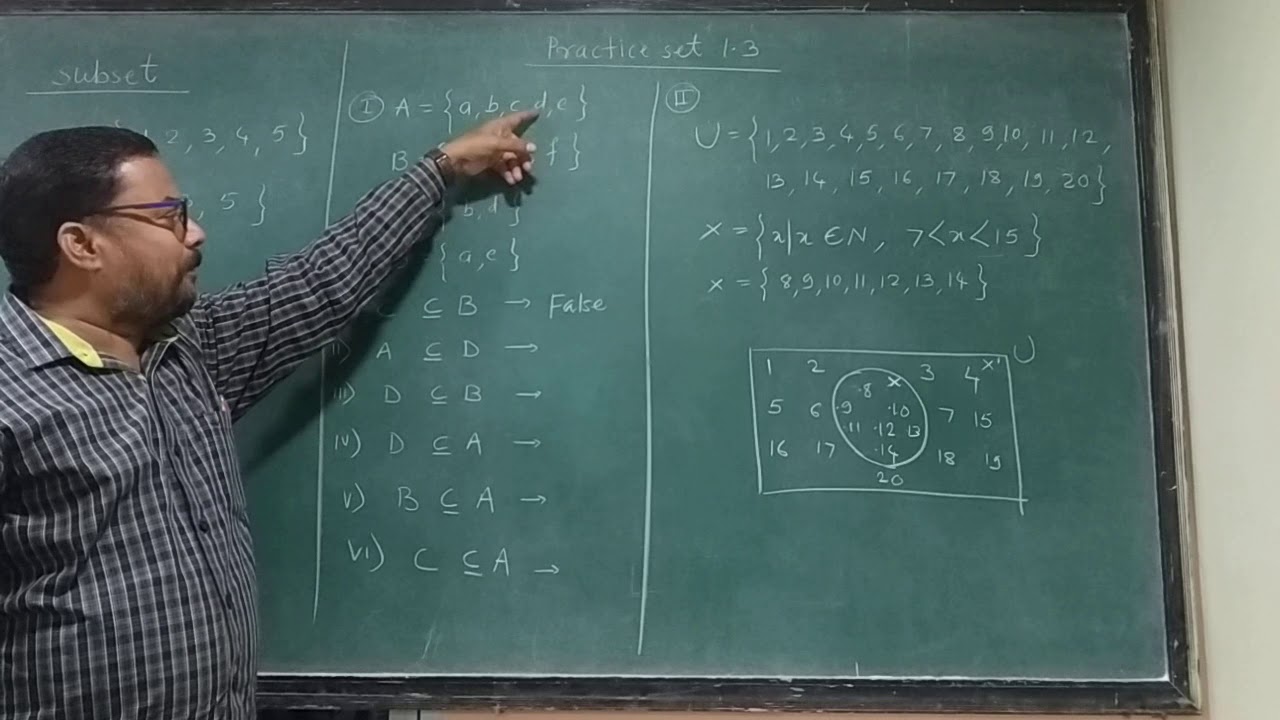 subset
1, 2, 3, 4, 5 }
, 5 }
Practice set 1.3
I A = { a, b, c, d, e }
B f }
b, d }
{ a, e }
C ⊆ B → False
ii) A ⊆ D →
iii) D ⊆ B →
iv) D ⊆ A →
v) B ⊆ A →
vi) C ⊆ A →
II
U = { 1, 2, 3, 4, 5, 6, 7, 8, 9, 10, 11, 12,
13, 14, 15, 16, 17, 18, 19, 20 }
x = { x | x ∈ N, 7 < x < 15 }
x = { 8, 9, 10, 11, 12, 13, 14 }
U
1 2 3 4 x'
x
.8
5 6 .9 .10 7 15
.11 .12 13
16 17 .14 18 19
20